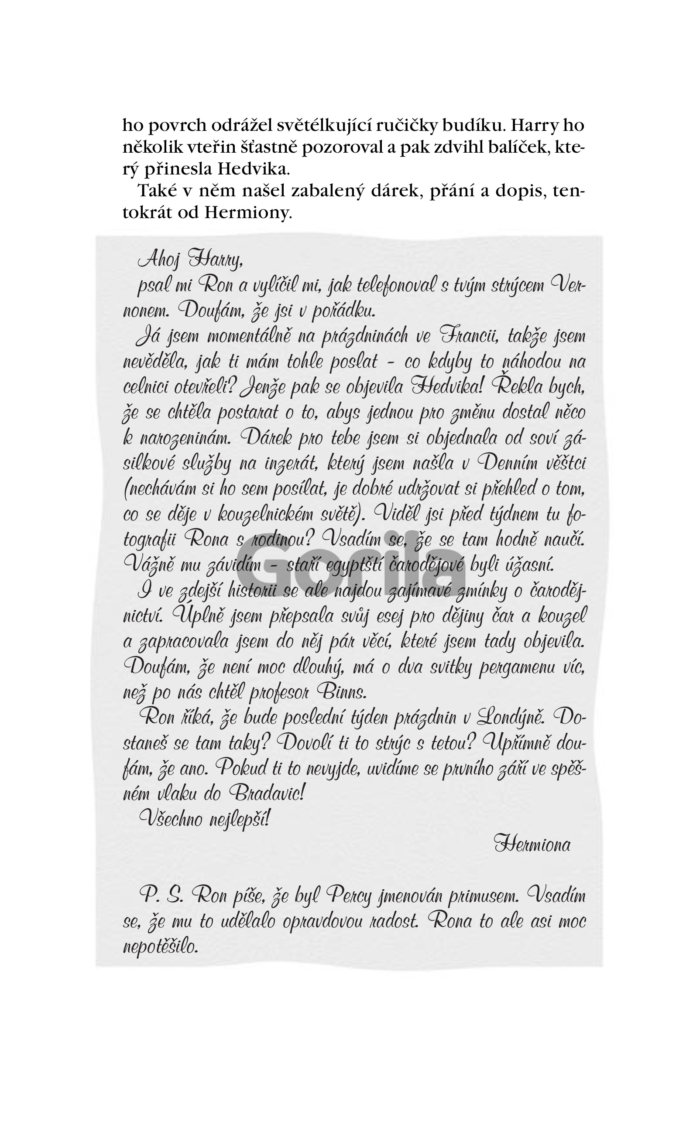 ho povrch odrážel světélkující ručičky budíku. Harry ho
několik vteřin šťastně pozoroval a pak zdvihl balíček, kte-
rý přinesla Hedvika.
Také v něm našel zabalený dárek, přání a dopis, ten-
tokrát od Hermiony.
Ahoj Harry,
psal mi Ron a vylíčil mi, jak telefonoval s tvým strýcem Ver-
nonem. Doufám, že jsi v pořádku.
Já jsem momentálně na prázdninách ve Francii, takže jsem
nevěděla, jak ti mám tohle poslat – co kdyby to náhodou na
celnici otevřeli? Jenže pak se objevila Hedvika! Řekla bych,
že se chtěla postarat o to, abys jednou pro změnu dostal něco
k narozeninám. Dárek pro tebe jsem si objednala od soví zá-
silkové služby na inzerát, který jsem našla v Denním věštci
(nechávám si ho sem posílat, je dobré udržovat si přehled o tom,
co se děje v kouzelnickém světě). Viděl jsi před týdnem tu fo-
tografii Rona s rodinou? Vsadím se, že se tam hodně naučí.
Vážně mu závidím – staří egyptští čarodějové byli úžasní.
Gorila
I ve zdejší historii se ale najdou zajímavé zmínky o čaroděj-
nictví. Úplně jsem přepsala svůj esej pro dějiny čar a kouzel
a zapracovala jsem do něj pár věcí, které jsem tady objevila.
Doufám, že není moc dlouhý, má o dva svitky pergamenu víc,
než po nás chtěl profesor Binns.
Ron říká, že bude poslední týden prázdnin v Londýně. Do-
staneš se tam taky? Dovolí ti to strýc s tetou? Upřímně dou-
fám, že ano. Pokud ti to nevyjde, uvidíme se prvního září ve spěš-
ném vlaku do Bradavic!
Všechno nejlepší!
Hermiona
P. S. Ron píše, že byl Percy jmenován primusem. Vsadím
se, že mu to udělalo opravdovou radost. Rona to ale asi moc
nepotěšilo.